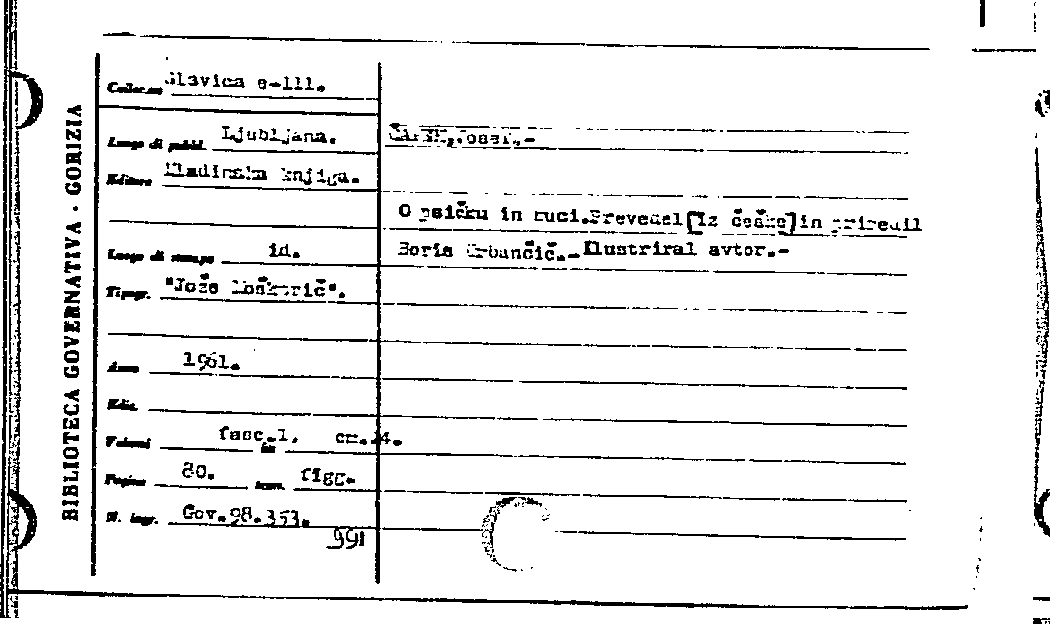 BIBLIOTECA GOVERNATIVA · GORIZIA
Slavica e-III.
Luogo di pubbl. Ljubljana.
Editore Mladinska knjiga.
Luogo di stampa id.
Tipogr. "Jože Moškrič".
Anno 1961.
Ediz.
Volumi fasc.1. in cm.
Pagine 80. figg.
N. ingr. Gov.98.353.
991
O psičku in muci.Prevedel [iz češke]in priredil
Boris Urbančič.-Ilustriral avtor.-